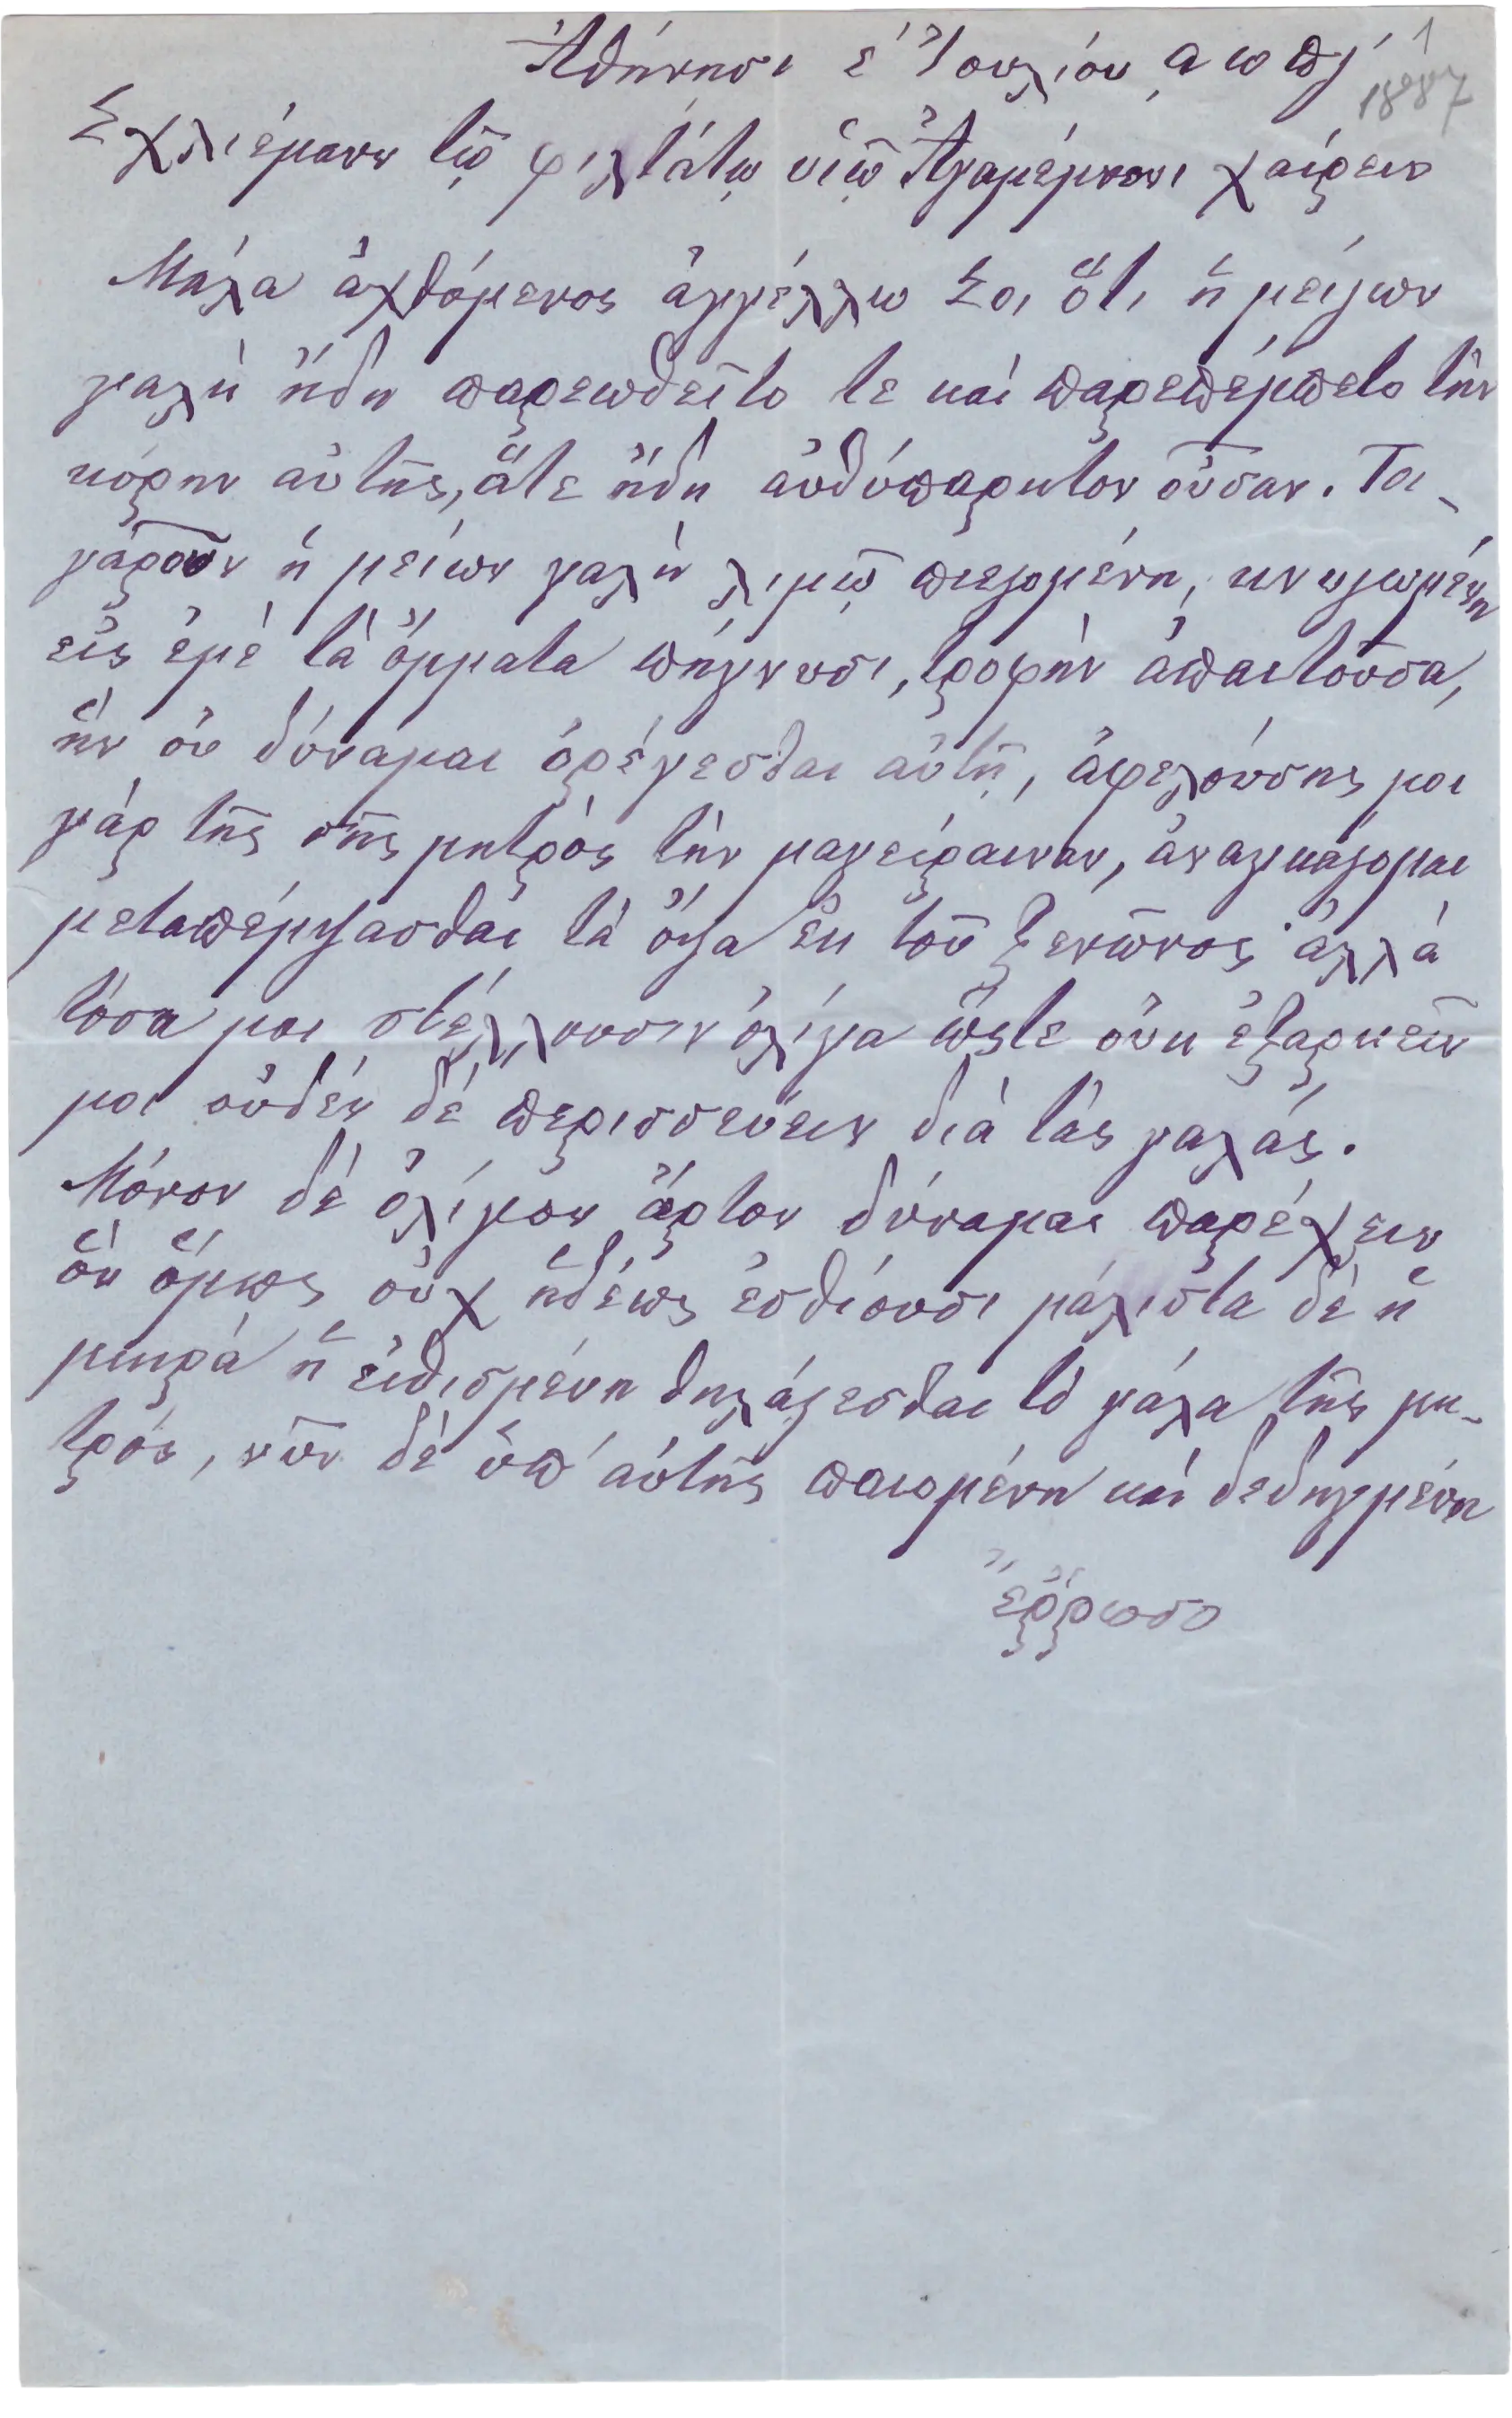 Ἀθήνησι ε´ Ἰουλίου αωπζ´ 1
1887
Σχλιέμανν τῷ φιλτάτῳ υἱῷ Ἀγαμέμνονι χαίρειν
Μάλα ἀχθόμενος ἀγγέλλω Σοι ὅτι ἡ μείζων
γαλῆ ἤδη παρεωθεῖτο τε καί παρεπέμπετο τὴν
κόρην αὐτῆς, ἅτε ἤδη αὐθύπαρκτον οὖσαν. Τοι-
γάροῦν ἡ μείων γαλῆ λιμῷ πιεζομένη, κνυζωμένη
εἰς ἐμέ τὰ ὄμματα πήγνυσι, τροφὴν ἀπαιτοῦσα,
ἥν οὐ δύναμαι ὀρέγεσθαι αὐτῇ, ἀφελούσης μοι
γάρ τῆς σῆς μητρός τὴν μαγείραιναν, ἀναγκάζομαι
μεταπέμψασθαι τὰ ὄψα ἐκ τοῦ ξενῶνος· ἀλλά
τόσα μοι στέλλουσιν ὀλίγα ὥςτε οὐκ ἐξαρκεῖν
μοι οὐδέν δέ περισσεύειν διά τὰς γαλάς.
Μόνον δέ ὀλίγον ἄρτον δύναμαι παρέχειν
ὅν ὅμως οὐχ ἡδέως ἐσθίουσι μάλιστα δὲ ἡ
μικρά ἡ εἰθισμένη θηλάζεσθαι τὸ γάλα τῆς μη-
τρός, νῦν δέ ὑπ' αὐτῆς παιομένη καί δεδηγμένη
ἔῤῥωσο